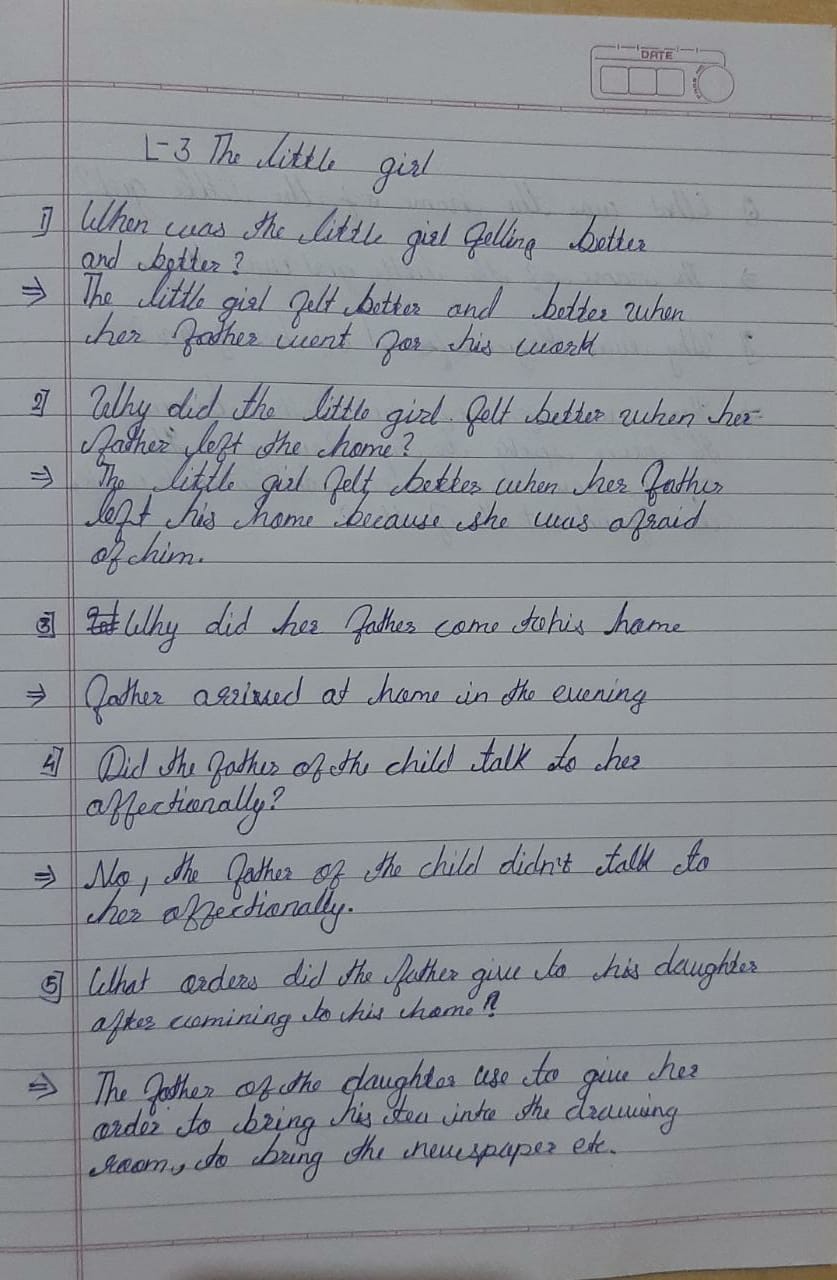 DATE
L-3 The little girl
1] When was the little girl felling better
and better?
⇒ The little girl felt better and better when
her father went for his work
2] Why did the little girl felt better when her
father left the home?
⇒ The little girl felt better when her father
left his home because she was afraid
of him.
3] Why did her father come to his home
⇒ father arrived at home in the evening
4] Did the father of the child talk to her
affectionally?
⇒ No, the father of the child didn't talk to
her affectionally.
5] What orders did the father give to his daughter
after comining to his home?
⇒ The father of the daughter use to give her
order to bring his tea into the drawing
room, to bring the newspaper etc.